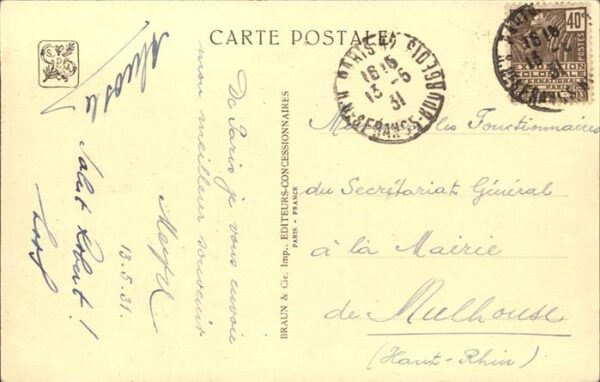 CARTE POSTALE
De Paris je vous envoie
mon meilleur souvenir
13.5.31.
Salut Robert !
BRAUN & Cie, Imp., EDITEURS-CONCESSIONNAIRES
PARIS - FRANCE
PARIS
16 15
13 - 5
31
40c
POSTES
EXPOSITION
COLONIALE
INTERNATIONALE
PARIS
les Fonctionnaires
du Secrétariat Général
à la Mairie
de Mulhouse
(Haut-Rhin)